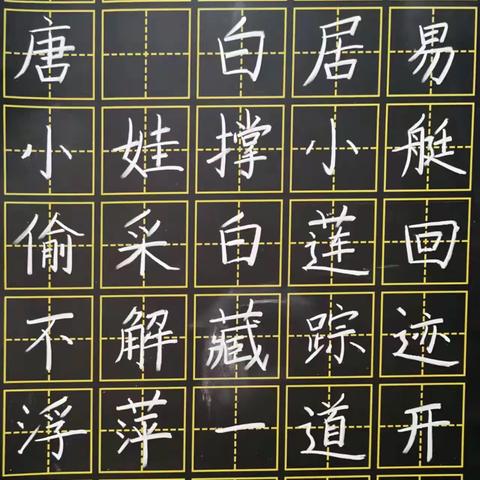 唐 白居易
小娃撑小艇
偷采白莲回
不解藏踪迹
浮萍一道开